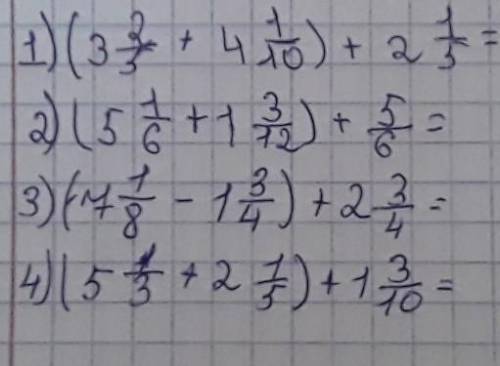 1) (3 2/3 + 4 1/10) + 2 1/3 =
2) (5 1/6 + 1 3/12) + 5/6 =
3) (7 1/8 - 1 3/4) + 2 3/4 =
4) (5 1/3 + 2 1/5) + 1 3/10 =